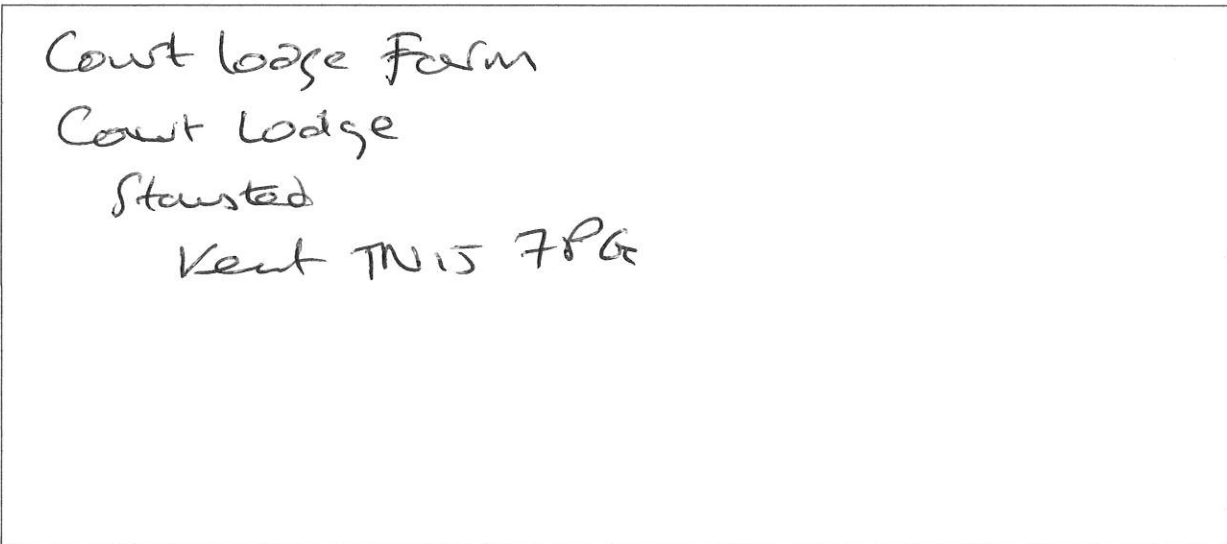 Court Lodge Farm
Court Lodge
Stansted
Kent TN15 7PG